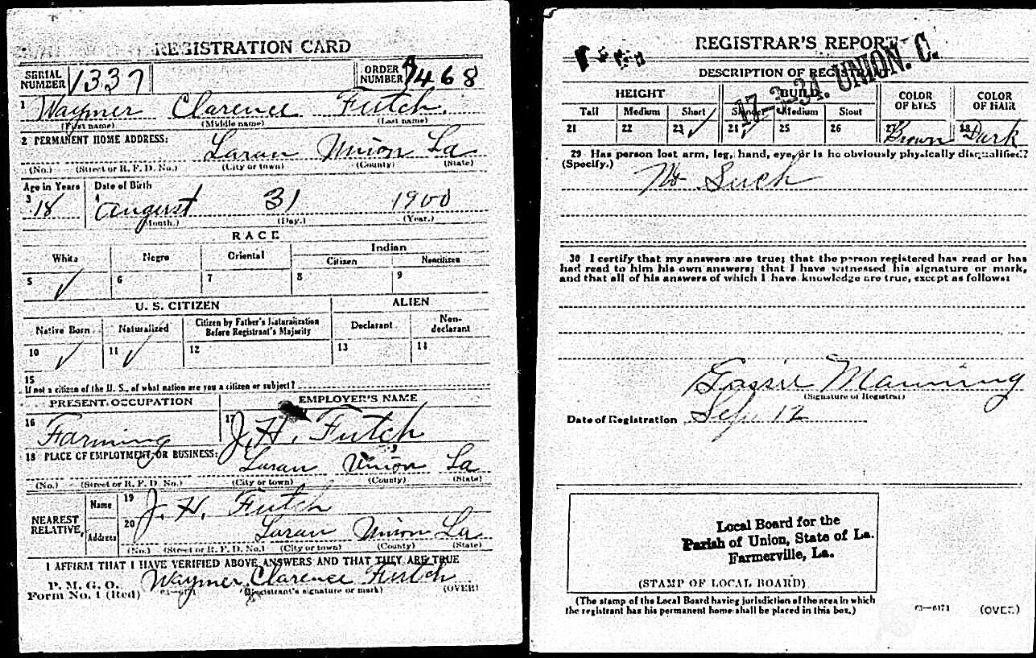 REGISTRATION CARD
SERIAL NUMBER 1337
ORDER NUMBER A 1468
1 Waymer Clarence Futch
(First name) (Middle name) (Last name)
2 PERMANENT HOME ADDRESS:
Laran Union La
(No.) (Street or R. F. D. No.) (City or town) (County) (State)
Age in Years Date of Birth
3 18 4 August 31 1900
(Month.) (Day.) (Year.)
RACE
White Negro Oriental Indian
Citizen Noncitizen
5 ✓ 6 7 8 9
U. S. CITIZEN ALIEN
Native Born Naturalized Citizen by Father's Naturalization Before Registrant's Majority Declarant Non-declarant
10 ✓ 11 ✓ 12 13 14
15
If not a citizen of the U. S., of what nation are you a citizen or subject?
PRESENT OCCUPATION EMPLOYER'S NAME
16 Farming 17 J. H. Futch
18 PLACE OF EMPLOYMENT OR BUSINESS:
Laran Union La
(No.) (Street or R. F. D. No.) (City or town) (County) (State)
NEAREST RELATIVE
Name 19 J. H. Futch
Address 20 Laran Union La
(No.) (Street or R. F. D. No.) (City or town) (County) (State)
I AFFIRM THAT I HAVE VERIFIED ABOVE ANSWERS AND THAT THEY ARE TRUE
P. M. G. O.
Form No. 1 (Red)
Waymer Clarence Futch
(Registrant's signature or mark) (OVER)
REGISTRAR'S REPORT
17-3-34. UNION. C.
DESCRIPTION OF REGISTRANT
HEIGHT BUILD COLOR OF EYES COLOR OF HAIR
Tall Medium Short Slender Medium Stout
21 22 23 ✓ 24 25 26 27 Brown 28 Dark
29 Has person lost arm, leg, hand, eye, or is he obviously physically disqualified?
(Specify.)
No Such
30 I certify that my answers are true; that the person registered has read or has
had read to him his own answers; that I have witnessed his signature or mark,
and that all of his answers of which I have knowledge are true, except as follows:
Manning
(Signature of Registrar)
Date of Registration Sep. 12
Local Board for the
Parish of Union, State of La.
Farmerville, La.
(STAMP OF LOCAL BOARD)
(The stamp of the Local Board having jurisdiction of the area in which
the registrant has his permanent home shall be placed in this box.)
63—6171 (OVER)